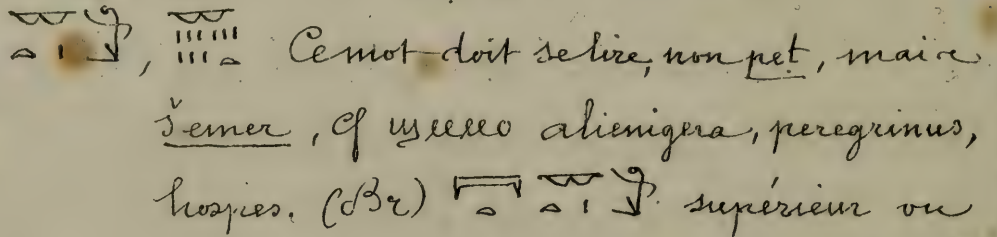 , Ce mot doit se lire, non pet, mais
šemer, cf ϣⲙⲙⲟ alienigera, peregrinus,
hospes. (Br) supérieur ou